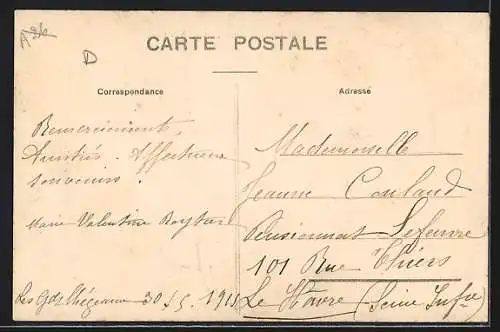 A26
D
CARTE POSTALE
Correspondance
Adresse
Remerciements,
Amitiés. Affectueux
souvenirs.
Marie Valentine
30 1915
Mademoiselle
Jeanne Coulaud
Pensionnat Lefeuvre
101 Rue Thiers
Le Havre (Seine Infre)